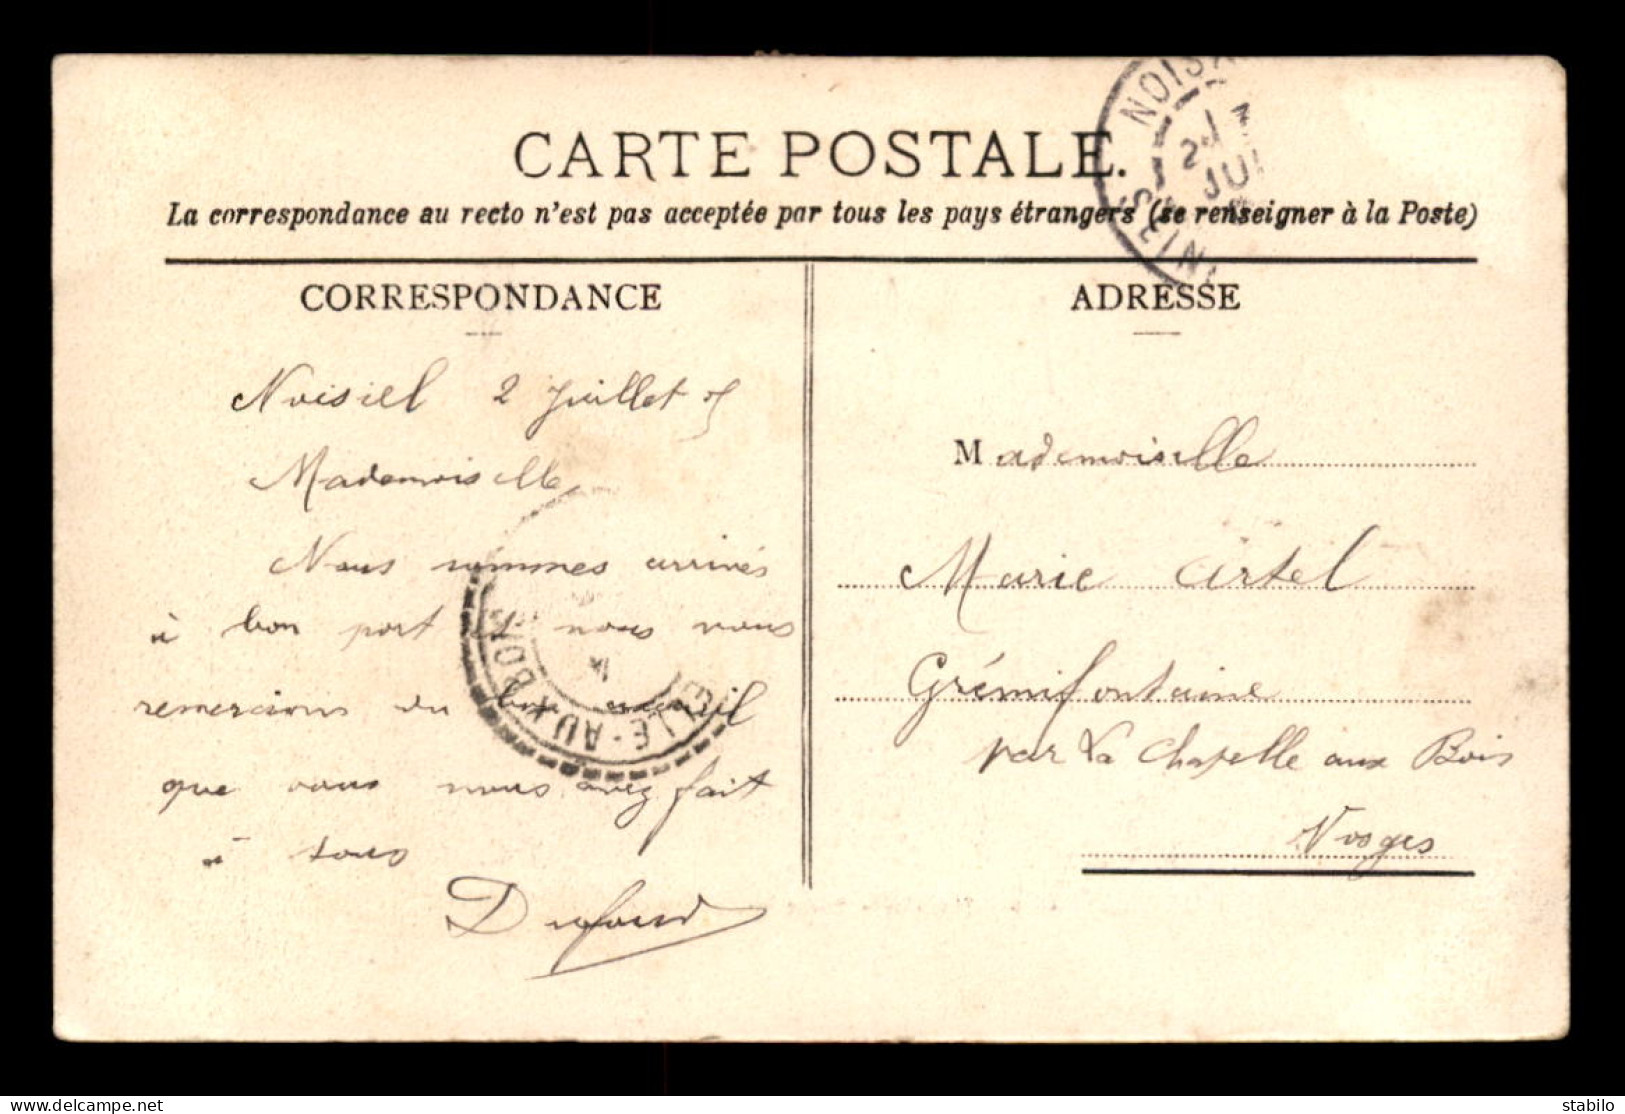 CARTE POSTALE.
La correspondance au recto n'est pas acceptée par tous les pays étrangers (se renseigner à la Poste)
CORRESPONDANCE
Noisiel 2 Juillet 05
Mademoiselle
Nous sommes arrivés
à bon port et nous vous
remercions du bon accueil
que vous nous avez fait
à tous
ELLE-AUX-BOIS
NOIS
2
JUI
SEIN
ADRESSE
Mademoiselle
Marie
Grémifontaine
par La Chapelle aux Bois
Vosges
www.delcampe.net
stabilo